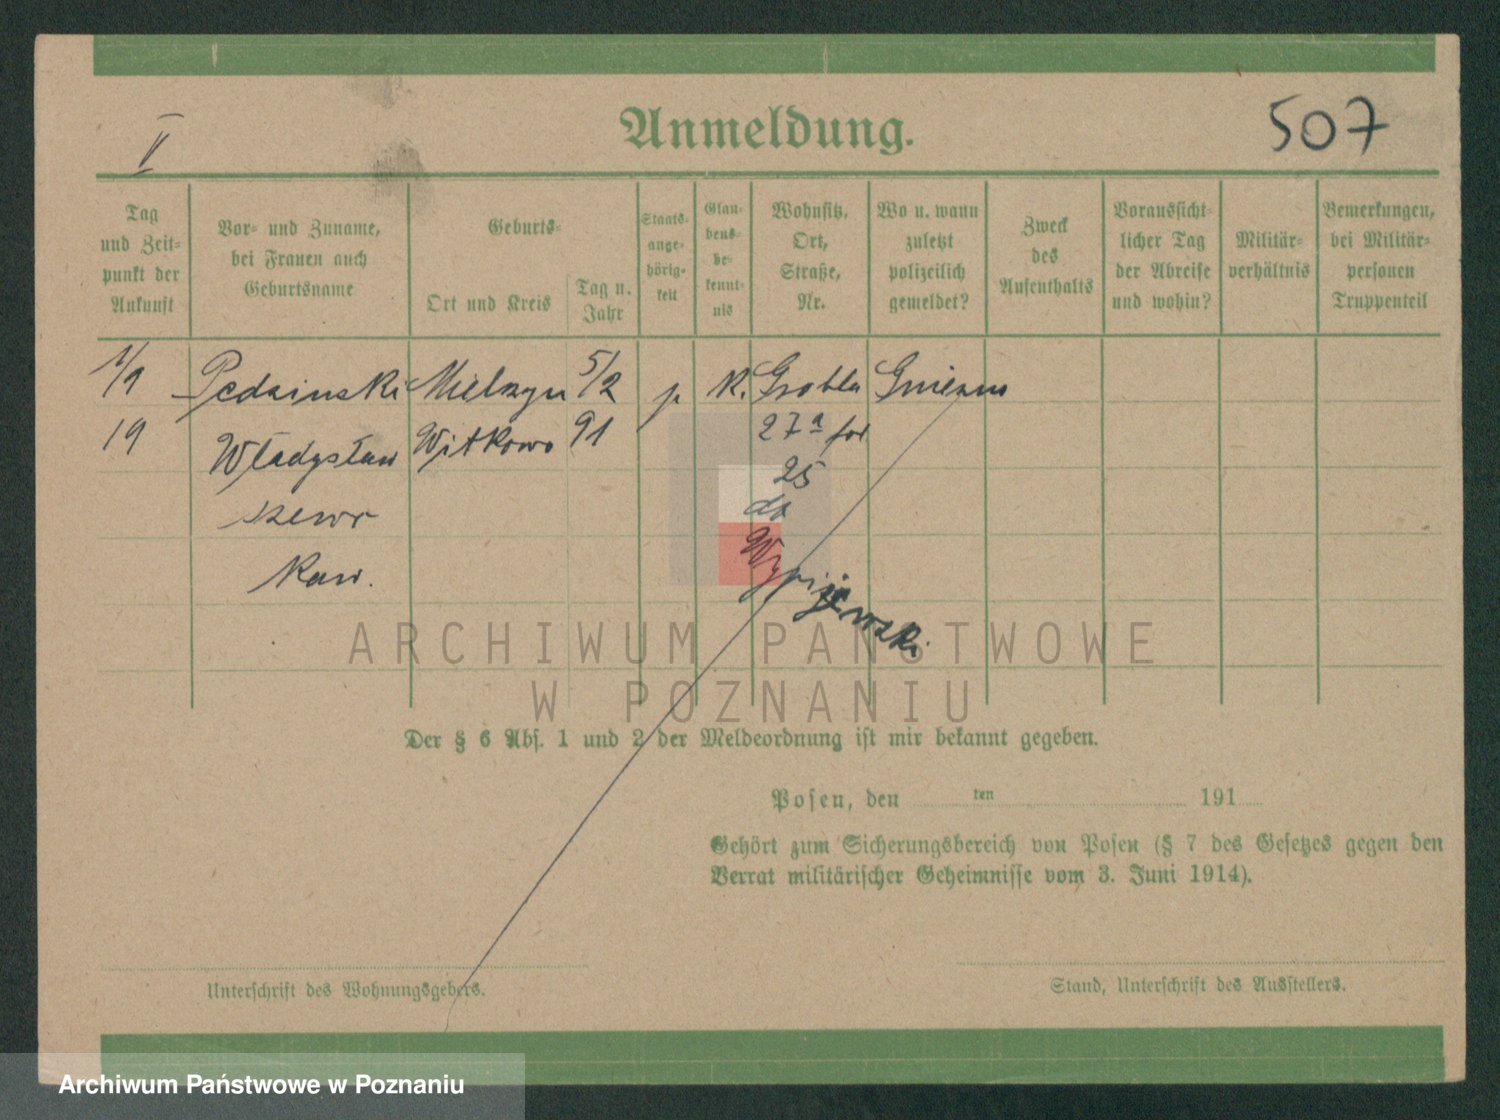 V
Anmeldung.
507
Tag und Zeit= punkt der Ankunft
Vor= und Zuname, bei Frauen auch Geburtsname
Geburts=
Ort und Kreis
Tag u. Jahr
Staats= ange= hörig= keit
Glau= bens= be= kennt= nis
Wohnsitz, Ort, Straße, Nr.
Wo u. wann zuletzt polizeilich gemeldet?
Zweck des Aufenthalts
Voraussicht= licher Tag der Abreise und wohin?
Militär= verhältnis
Bemerkungen, bei Militär= personen Truppenteil
1/1 Pedzinski Mielzyn 5/2 p. K. Grobla Gniezno
19 Władysław Witkowo 91 27a
szewc 25
do
Kaw. Wypijewski
ARCHIWUM PAŃSTWOWE
W POZNANIU
Der § 6 Abs. 1 und 2 der Meldeordnung ist mir bekannt gegeben.
Posen, den ten 191
Gehört zum Sicherungsbereich von Posen (§ 7 des Gesetzes gegen den
Verrat militärischer Geheimnisse vom 3. Juni 1914).
Unterschrift des Wohnungsgebers.
Stand, Unterschrift des Ausstellers.
Archiwum Państwowe w Poznaniu